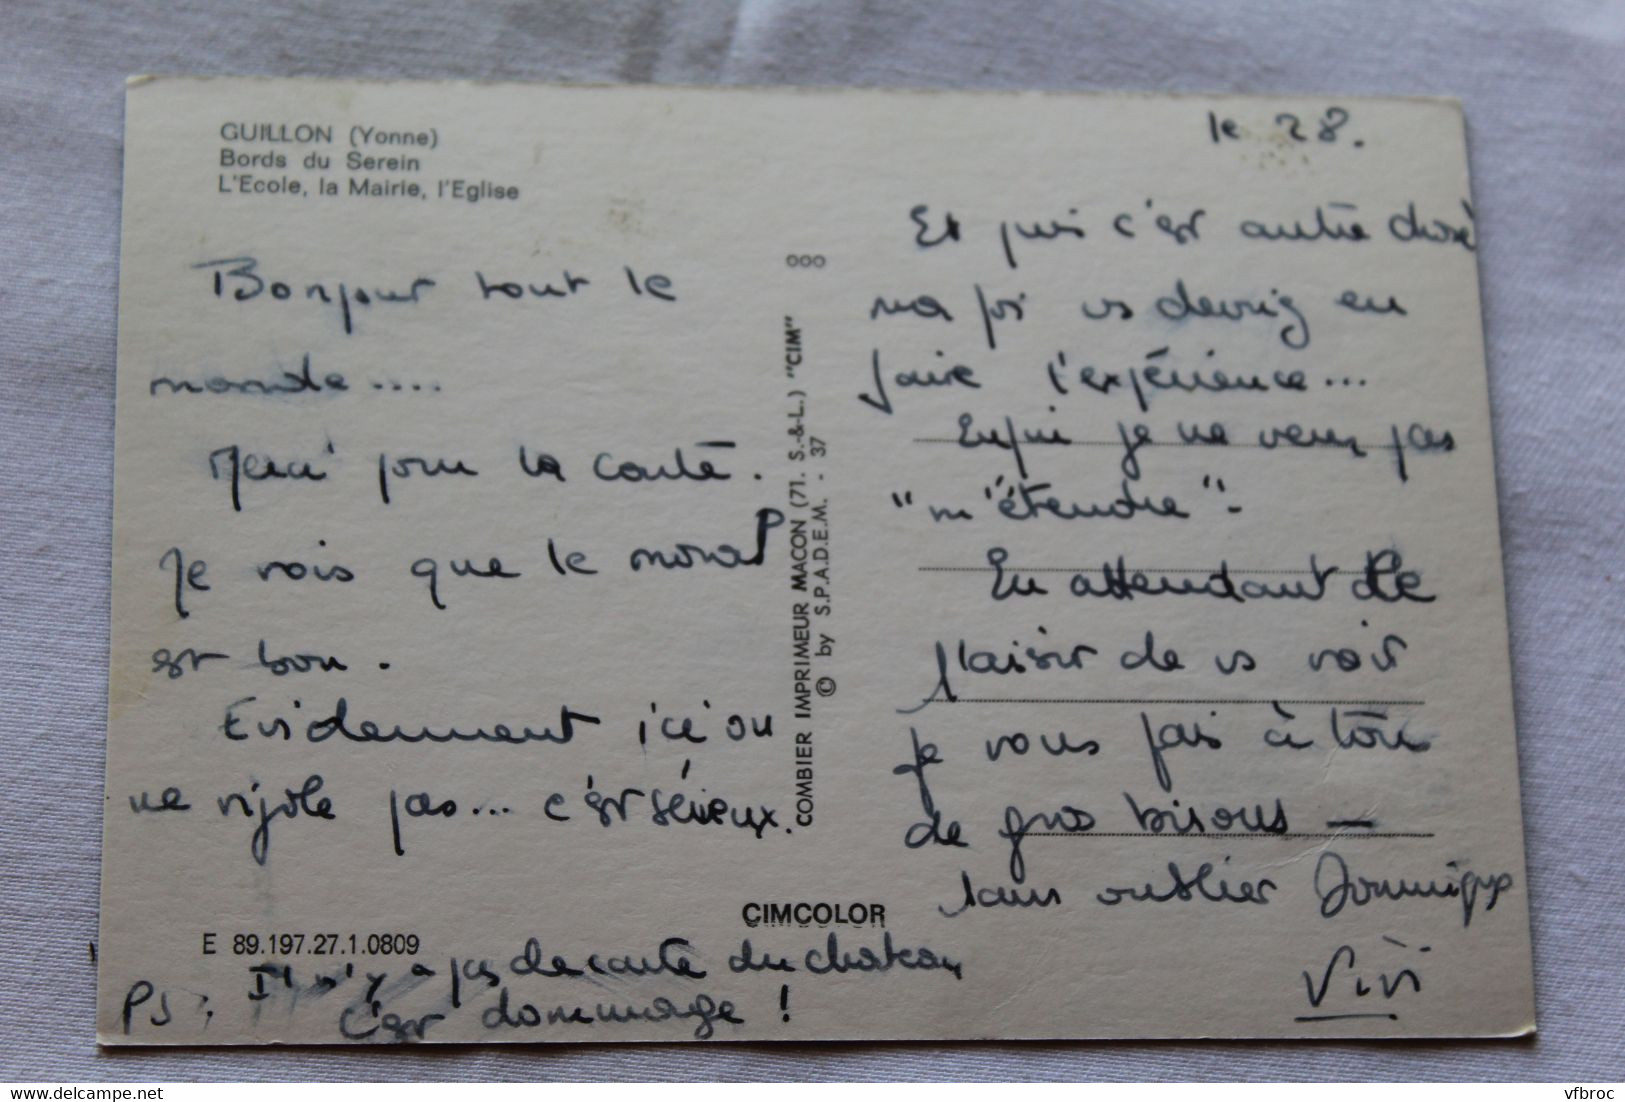 GUILLON (Yonne)
Bords du Serein
L'Ecole, la Mairie, l'Eglise
Bonjour tout le
monde....
Merci pour la carte.
Je vois que le moral
est bon.
Evidemment ici on
ne rigole pas... c'est sérieux.
E 89.197.27.1.0809
CIMCOLOR
PS: Il n'y a pas de carte du chateau
c'est dommage !
COMBIER IMPRIMEUR MACON (71. S.-&-L.) "CIM"
© by S.P.A.D.E.M. - 37
le 28.
Et puis c'est autre chose
ma foi vs devriez en
faire l'expérience...
Enfin je ne veux pas
"m'étendre".
En attendant le
plaisir de vs voir
je vous fais à tous
de gros bisous —
sans oublier Dominique
Vivi
delcampe.net
vfbroc